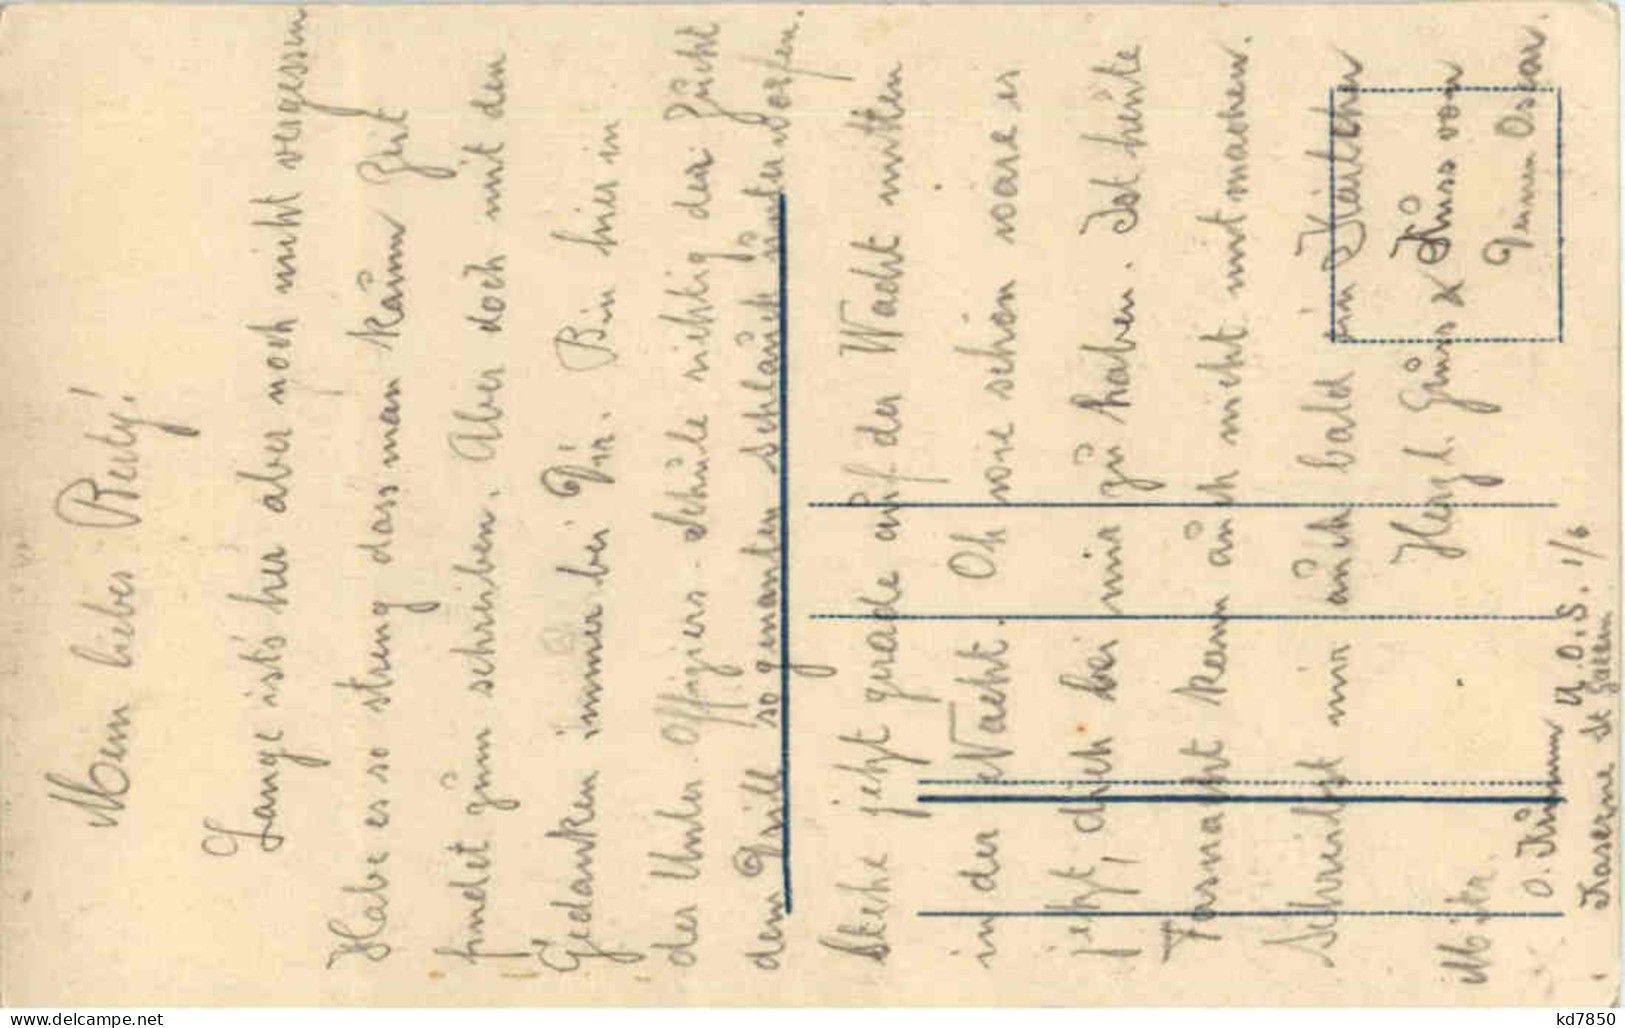 Mein liebes Rudy!
Lange ist's her aber noch nicht vergessen
Habe es so streng dass man kaum Zeit
findet zum schreiben. Aber doch mit den
Gedanken immer bei Dir. Bin hier in
der Unter-Offiziers-Schule richtig der Zucht
dem Drill so genanten Schlauch unterworfen.
Stehe jetzt gerade auf der Wacht mitten
in der Nacht. Oh wie schön wäre es
jetzt, dich bei mir zu haben. Ist heute
Fasnacht kann auch nicht mitmachen.
Schreibst mir auch bald ein Kärtchen
Herzl. Gruss & Kuss von
Deinem Oskar.
Mstr.
O. Krumm U.O.S. 1/6
Kaserne St Gallen
kd7850